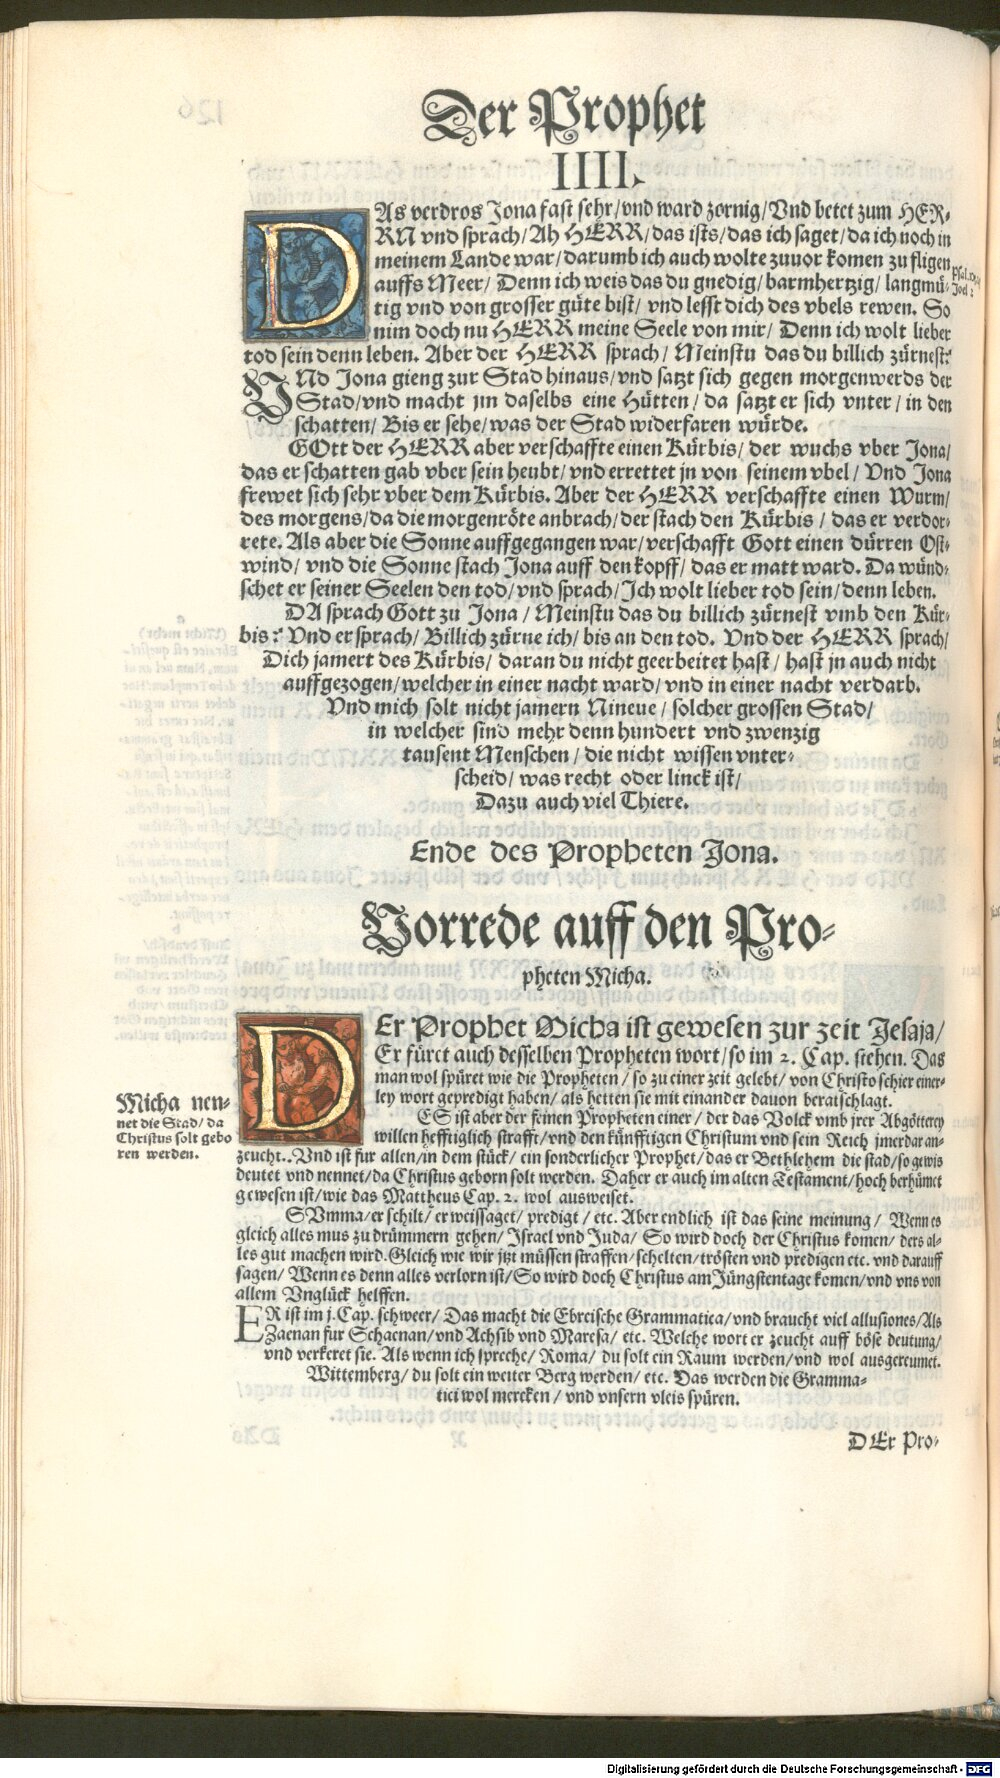 Der Prophet
IIII.
DAs verdros Jona fast sehr/vnd ward zornig/Vnd betet zum HER-
RN vnd sprach/Ah HERR/das ists/das ich saget/da ich noch in
meinem Lande war/darumb ich auch wolte zuuor komen zu fligen
auffs Meer/Denn ich weis das du gnedig/barmhertzig/langmü-
tig vnd von grosser güte bist/vnd lesst dich des vbels rewen. So
nim doch nu HERR meine Seele von mir/Denn ich wolt lieber
tod sein denn leben. Aber der HERR sprach/Meinstu das du billich zürnest?
VNd Jona gieng zur Stad hinaus/vnd satzt sich gegen morgenwerds der
Stad/vnd macht jm daselbs eine Hütten/da satzt er sich vnter/in den
schatten/Bis er sehe/was der Stad widerfaren würde.
GOtt der HERR aber verschaffte einen Kürbis/der wuchs vber Jona/
das er schatten gab vber sein heubt/vnd errettet jn von seinem vbel/Vnd Jona
frewet sich sehr vber dem Kürbis. Aber der HERR verschaffte einen Wurm/
des morgens/da die morgenröte anbrach/der stach den Kürbis/das er verdor-
rete. Als aber die Sonne auffgegangen war/verschafft Gott einen dürren Ost-
wind/vnd die Sonne stach Jona auff den kopff/das er matt ward. Da wünd-
schet er seiner Seelen den tod/vnd sprach/Ich wolt lieber tod sein/denn leben.
DA sprach Gott zu Jona/Meinstu das du billich zürnest vmb den Kür-
bis? Vnd er sprach/Billich zürne ich/bis an den tod. Vnd der HERR sprach/
Dich jamert des Kürbis/daran du nicht geerbeitet hast/hast jn auch nicht
auffgezogen/welcher in einer nacht ward/vnd in einer nacht verdarb.
Vnd mich solt nicht jamern Nineue/solcher grossen Stad/
in welcher sind mehr denn hundert vnd zwenzig
tausent Menschen/die nicht wissen vnter-
scheid/was recht oder linck ist/
Dazu auch viel Thiere.
Ende des Propheten Jona.
Vorrede auff den Pro-
pheten Micha.
DEr Prophet Micha ist gewesen zur zeit Jesaja/
Er füret auch desselben Propheten wort/so im 2. Cap. stehen. Das
man wol spüret wie die Propheten/so zu einer zeit gelebt/von Christo schier einer-
ley wort gepredigt haben/als hetten sie mit einander dauon beratschlagt.
ES ist aber der feinen Propheten einer/der das Volck vmb jrer Abgötterey
willen hefftiglich strafft/vnd den künfftigen Christum vnd sein Reich jmerdar an-
zeucht. Vnd ist fur allen/in dem stück/ein sonderlicher Prophet/das er Bethlehem die stad/so gewis
deutet vnd nennet/da Christus geborn solt werden. Daher er auch im alten Testament/hoch berhümet
gewesen ist/wie das Mattheus Cap. 2. wol ausweiset.
SVmma/er schilt/er weissaget/predigt/etc. Aber endlich ist das seine meinung/Wenn es
gleich alles mus zu drümmern gehen/Israel vnd Juda/So wird doch der Christus komen/ders al-
les gut machen wird. Gleich wie wir jtzt müssen straffen/schelten/trösten vnd predigen etc. vnd darauff
sagen/Wenn es denn alles verlorn ist/So wird doch Christus am Jüngstentage komen/vnd vns von
allem Vnglück helffen.
ER ist im j. Cap. schweer/Das macht die Ebreische Grammatica/vnd braucht viel allusiones/Als
Zaenan fur Schaenan/vnd Achsib vnd Maresa/etc. Welche wort er zeucht auff böse deutung/
vnd verkeret sie. Als wenn ich spreche/Roma/du solt ein Raum werden/vnd wol ausgereumet.
Wittemberg/du solt ein weiter Berg werden/etc. Das werden die Gramma-
tici wol mercken/vnd vnsern vleis spüren.
Micha nen-
net die Stad/da
Christus solt gebo
ren werden.
DEr Pro-
Digitalisierung gefördert durch die Deutsche Forschungsgemeinschaft - DFG